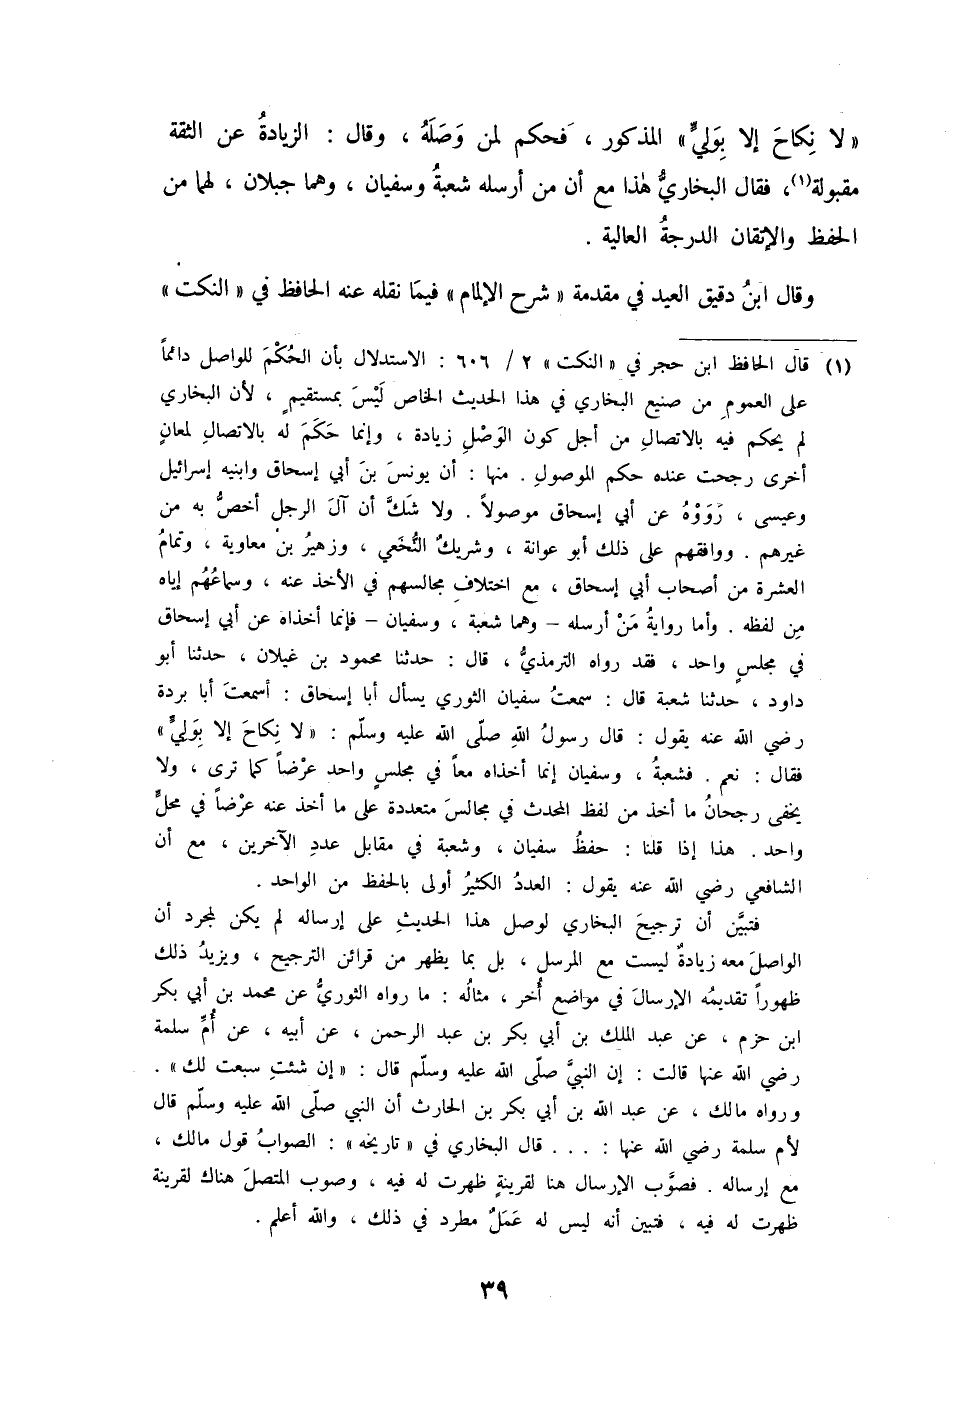 « لا نِكاحَ إلا بِوَليٍّ » المذكور ، فحكم لمن وَصَلَهُ ، وقال : الزيادةُ عن الثقة
مقبولة(١)، فقال البخاريُّ هٰذا مع أن من أرسله شعبةُ وسفيان ، وهما جبلان ، لهما من
الحفظ والإتقان الدرجةُ العالية .
وقال ابنُ دقيق العيد في مقدمة « شرح الإلمام » فيمَا نقله عنه الحافظ في « النكت »
(١) قال الحافظ ابن حجر في « النكت » ٢ / ٦٠٦ : الاستدلال بأن الحُكْمَ للواصل دائماً
على العمومِ من صنيع البخاري في هذا الحديث الخاص لَيْسَ بمستقيمٍ ، لأن البخاري
لم يحكم فيه بالاتصالِ من أجل كون الوَصْلِ زيادة ، وإنما حَكَمَ له بالاتصالِ لمعانٍ
أخرى رجحت عنده حكم الموصولِ . منها : أن يونسَ بنَ أبي إسحاق وابنيه إسرائيل
وعيسى ، رَوَوْهُ عن أبي إسحاق موصولاً . ولا شَكَّ أن آلَ الرجل أخصُّ به من
غيرهم . ووافقهم على ذلك أبو عوانة ، وشريكٌ النُّخَعي ، وزهيرُ بنْ معاوية ، وتمامُ
العشرة من أصحاب أبي إسحاق ، مع اختلافِ مجالسهم في الأخذ عنه ، وسماعُهُم إياه
مِن لفظه . وأما روايةُ مَنْ أرسله – وهما شعبة ، وسفيان – فإنما أخذاه عن أبي إسحاق
في مجلسٍ واحد ، فقد رواه الترمذيُّ ، قال : حدثنا محمود بن غيلان ، حدثنا أبو
داود ، حدثنا شعبة قال : سمعتُ سفيان الثوري يسأل أبا إسحاق : أسمعتَ أبا بردة
رضي الله عنه يقول : قال رسولُ اللهِ صلّى الله عليه وسلّم : « لا نِكاحَ إلا بِوَليٍّ »
فقال : نعم . فشعبةُ ، وسفيان إنما أخذاه معاً في مجلسٍ واحد عرْضاً كما ترى ، ولا
يخفى رجحانُ ما أخذ من لفظ المحدث في مجالسَ متعددة على ما أخذ عنه عرْضاً في محلٍّ
واحد . هذا إذا قلنا : حفظُ سفيان ، وشعبة في مقابل عددِ الآخرين ، مع أن
الشافعي رضي الله عنه يقول : العددُ الكثيرُ أولى بالحفظ من الواحد .
فتبيَّن أن ترجيحَ البخاري لوصل هذا الحديثِ على إرساله لم يكن لمجرد أن
الواصلَ معه زيادةٌ ليست مع المرسل ، بل بما يظهر من قرائن الترجيح ، ويزيدُ ذلك
ظهوراً تقديمُه الإرسالَ في مواضع أُخر ، مثالُه : ما رواه الثوريُّ عن محمد بن أبي بكر
ابن حزم ، عن عبد الملك بن أبي بكر بن عبد الرحمن ، عن أبيه ، عن أُمِّ سلمة
رضي الله عنها قالت : إن النبيَّ صلّى الله عليه وسلّم قال : « إن شئتِ سبعت لك » .
ورواه مالك ، عن عبد الله بن أبي بكر بن الحارث أن النبي صلّى الله عليه وسلّم قال
لأم سلمة رضي الله عنها : . . . قال البخاري في « تاريخه » : الصوابُ قول مالك ،
مع إرساله . فصوَّب الإرسال هنا لقرينةٍ ظهرت له فيه ، وصوب المتصلَ هناك لقرينة
ظهرت له فيه ، فتبين أنه ليس له عَمَلٌ مطرد في ذلك ، والله أعلم .
٣٩